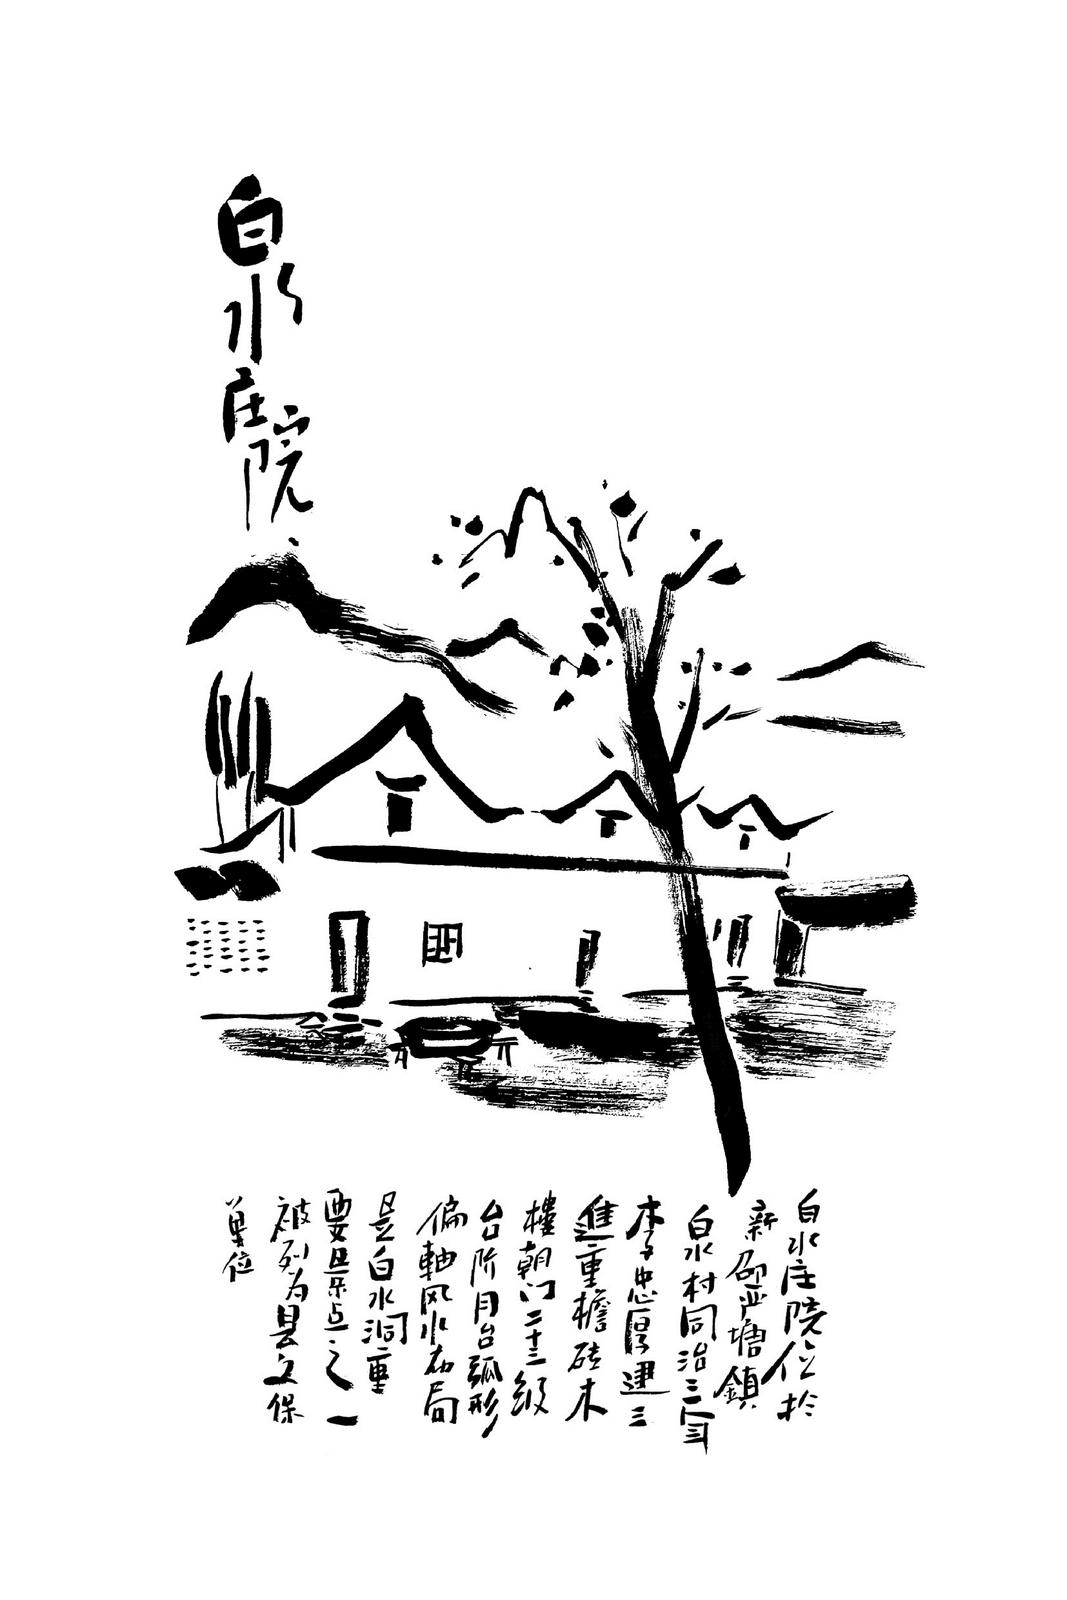 白水庄院
白水庄院位於
新邵严塘鎮
白水村同治三年
李忠厚建三
進重檐砖木
樓朝门二十三级
台阶月台弧形
偏軸风水布局
是白水洞重
要景点之一
被列为县文保
单位